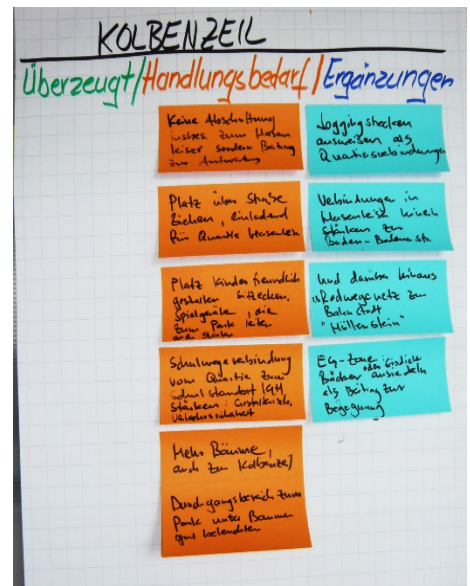 KOLBENZEIL
Überzeugt/Handlungsbedarf/Ergänzungen
Keine Abschottung
insbes. zum Hasen
leiser sondern Beitrag
zur Aufwertung
Platz über Straße
ziehen, einladend
für Quartier Hasenleis
Platz kinderfreundlich
gestalten Sitzecken,
Spielgeräte, die
zum Park leiten
Schulwegeverbindung
vom Quartier zum
Schulstandort IGH
stärken: Gestalterisch,
Verkehrssicherheit
Mehr Bäume,
auch zu Kolbenzeil
Durchgangsbereich zum
Park unter Bäumen
gut beleuchten
Joggingstrecken
ausweisen als
Quartiersverbindungen
Verbindungen in
Hasenleiser hinein
stärken zur
Baden-Badener Str.
Und darüber hinaus
Radwegenetz zur
Bahnstadt
"Höllenstein"
EG-Zone oder Eisdiele
Bäcker ansiedeln
als Beitrag zur
Begegnung